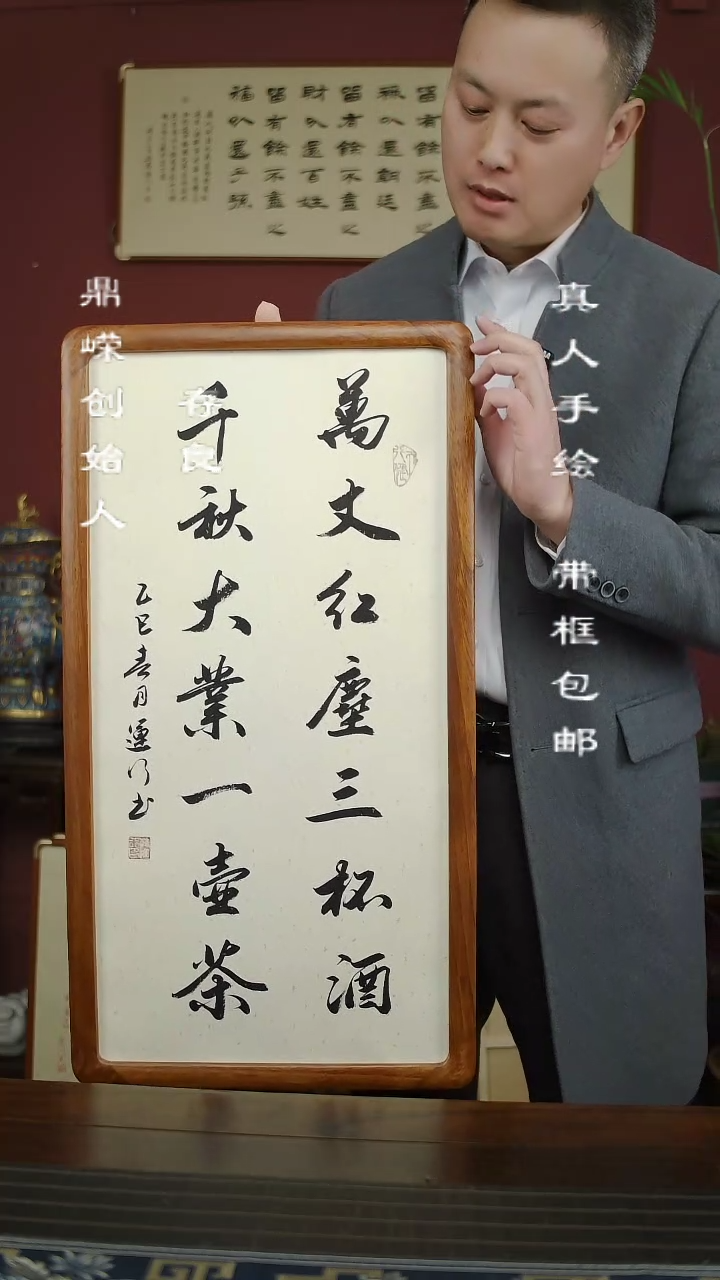 萬丈紅塵三杯酒
千秋大業一壺茶
乙巳春月運行書
真人手绘 带框包邮
鼎嵘创始人
存良
留有餘不盡之
祿以還朝廷
留有餘不盡之
財以還百姓
留有餘不盡之
福以還子孫